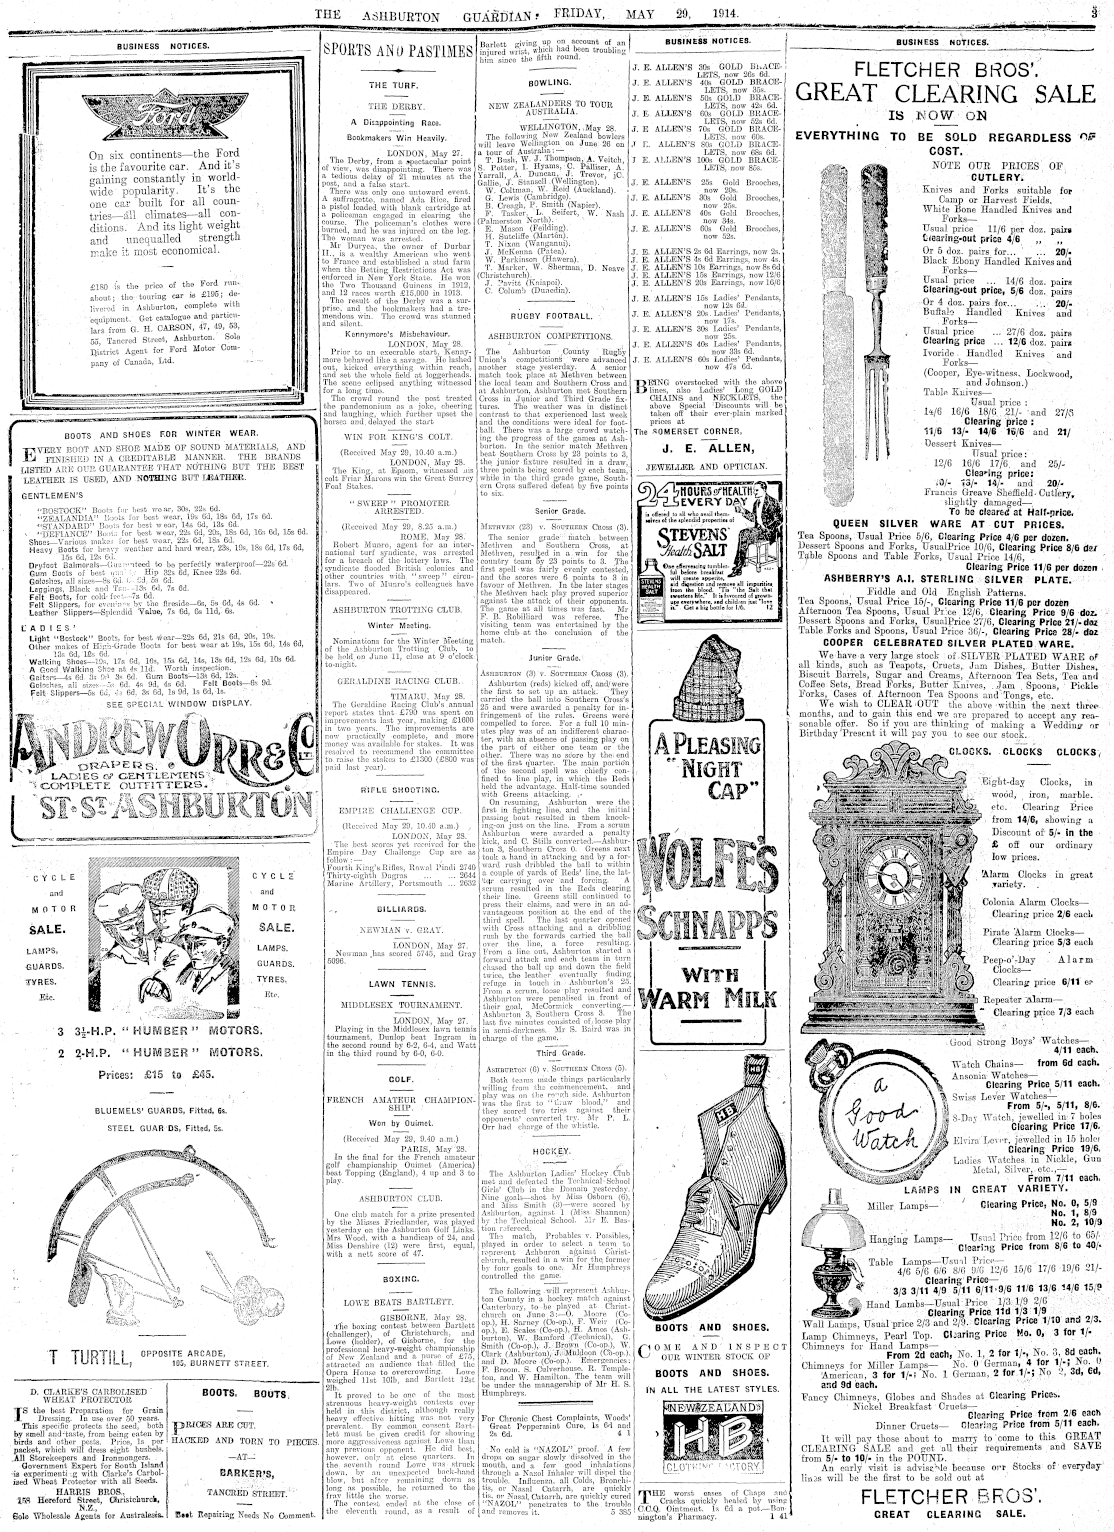 THE ASHBURTON GUARDIAN, FRIDAY, MAY 29, 1914.
3
BUSINESS NOTICES.
Ford
On six continents—the Ford
is the favourite car. And it's
gaining constantly in world-
wide popularity. It's the
one car built for all coun-
tries—all climates—all con-
ditions. And its light weight
and unequalled strength
make it most economical.
£180 is the price of the Ford run-
about; the touring car is £195; de-
livered in Ashburton, complete with
equipment. Get catalogue and particu-
lars from G. H. CARSON, 47, 49, 53,
55, Tancred Street, Ashburton. Sole
District Agent for Ford Motor Com-
pany of Canada, Ltd.
BOOTS AND SHOES FOR WINTER WEAR.
EVERY BOOT AND SHOE MADE OF SOUND MATERIALS, AND
FINISHED IN A CREDITABLE MANNER. THE BRANDS
LISTED ARE OUR GUARANTEE THAT NOTHING BUT THE BEST
LEATHER IS USED, AND NOTHING BUT LEATHER.
GENTLEMEN'S
"BOSTOCK" Boots for best wear, 30s, 22s 6d.
"ZEALANDIA" Boots for best wear, 19s 6d, 18s 6d, 17s 6d.
"STANDARD" Boots for best wear, 14s 6d, 13s 6d.
"DEFIANCE" Boots for best wear, 22s 6d, 20s, 18s 6d, 16s 6d, 15s 6d.
Shoes—Various makes for best wear, 22s 6d, 18s 6d.
Heavy Boots for heavy weather and hard wear, 23s, 19s, 18s 6d, 17s 6d,
15s 6d, 12s 6d.
Dryfoot Balmorals—Guaranteed to be perfectly waterproof—22s 6d.
Gum Boots of best Hip 32s 6d, Knee 22s 6d.
Goloshes, all sizes—8s 6d 5s 6d.
Leggings, Black and Tan—13s 6d, 7s 6d.
Felt Boots, for cold feet—7s 6d.
Felt Slippers, for evenings by the fireside—6s, 5s 6d, 4s 6d.
Leather Slippers—Splendid Value, 7s 6d, 8s 11d, 6s.
LADIES'
Light "Bostock" Boots, for best wear—22s 6d, 21s 6d, 20s, 19s.
Other makes of High-Grade Boots for best wear at 19s, 15s 6d, 14s 6d,
13s 6d, 12s 6d.
Walking Shoes—19s, 17s 6d, 16s, 15s 6d, 14s, 13s 6d, 12s 6d, 10s 6d.
A Good Walking Shoe at 4s 11d. Worth inspection.
Gaiters—4s 6d 3s 9d 3s 6d. Gum Boots—13s 6d, 12s.
Goloshes, all sizes—5s 6d, 4s 9d, 4s 6d. Felt Boots—6s 9d.
Felt Slippers—5s 6d, 4s 6d, 3s 6d, 1s 9d, 1s 6d, 1s.
SEE SPECIAL WINDOW DISPLAY.
ANDREW ORR & Co
DRAPERS.
LADIES & GENTLEMENS
COMPLETE OUTFITTERS.
ST. ST. ASHBURTON
CYCLE
and
MOTOR
SALE.
LAMPS,
GUARDS.
TYRES.
Etc.
CYCLE
and
MOTOR
SALE.
LAMPS.
GUARDS.
TYRES.
Etc.
3 3½-H.P. "HUMBER" MOTORS.
2 2-H.P. "HUMBER" MOTORS.
Prices: £15 to £45.
BLUEMELS' GUARDS, Fitted, 6s.
STEEL GUARDS, Fitted, 5s.
T TURTILL, OPPOSITE ARCADE,
165, BURNETT STREET.
D. CLARKE'S CARBOLISED
WHEAT PROTECTOR
IS the best Preparation for Grain
Dressing. In use over 50 years.
This specific protects the seed, both
by smell and taste, from being eaten by
birds and other pests. Price, 1s per
packet, which will dress six bushels.
All Storekeepers and Ironmongers.
Government Expert for South Island
is experimenting with Clarke's Carbol-
ised Wheat Protector with all Seeds.
HARRIS BROS.,
158 Hereford Street, Christchurch,
N.Z.,
Sole Wholesale Agents for Australasia.
BOOTS. BOOTS.
PRICES ARE CUT.
HACKED AND TORN TO PIECES.
—AT—
BARKER'S,
TANCRED STREET.
Best Repairing Needs No Comment.
SPORTS AND PASTIMES
THE TURF.
THE DERBY.
A Disappointing Race.
Bookmakers Win Heavily.
LONDON, May 27.
The Derby, from a spectacular point
of view, was disappointing. There was
a tedious delay of 21 minutes at the
post, and a false start.
There was only one untoward event.
A suffragette, named Ada Rice, fired
a pistol loaded with blank cartridge at
a policeman engaged in clearing the
course. The policeman's clothes were
burned, and he was injured on the leg.
The woman was arrested.
Mr Duryea, the owner of Durbar
II., is a wealthy American who went
to France and established a stud farm
when the Betting Restrictions Act was
enforced in New York State. He won
the Two Thousand Guineas in 1912,
and 12 races worth £15,000 in 1913.
The result of the Derby was a sur-
prise, and the bookmakers had a tre-
mendous win. The crowd was stunned
and silent.
Kennymore's Misbehaviour.
LONDON, May 28.
Prior to an execrable start, Kenny-
more behaved like a savage. He lashed
out, kicked everything within reach,
and set the whole field at loggerheads.
The scene eclipsed anything witnessed
for a long time.
The crowd round the post treated
the pandemonium as a joke, cheering
and laughing, which further upset the
horses and delayed the start
WIN FOR KING'S COLT.
(Received May 29, 10.40 a.m.)
LONDON, May 28.
The King, at Epsom, witnessed his
colt Friar Marcus win the Great Surrey
Foal Stakes.
"SWEEP" PROMOTER
ARRESTED.
(Received May 29, 8.25 a.m.)
ROME, May 28.
Robert Munro, agent for an inter-
national turf syndicate, was arrested
for a breach of the lottery laws. The
syndicate flooded British colonies and
other countries with "sweep" circu-
lars. Two of Munro's colleagues have
disappeared.
ASHBURTON TROTTING CLUB.
Winter Meeting.
Nominations for the Winter Meeting
of the Ashburton Trotting Club, to
be held on June 11, close at 9 o'clock
to-night.
GERALDINE RACING CLUB.
TIMARU, May 28.
The Geraldine Racing Club's annual
report states that £700 was spent on
improvements last year, making £1600
in two years. The improvements are
now practically complete, and more
money was available for stakes. It was
resolved to recommend the committee
to raise the stakes to £1300 (£800 was
paid last year).
RIFLE SHOOTING.
EMPIRE CHALLENGE CUP.
(Received May 29, 10.40 a.m.)
LONDON, May 28.
The best scores yet received for the
Empire Day Challenge Cup are as
follow:—
Fourth King's Rifles, Rawal Pindi 2740
Thirty-eighth Dogras ... 2644
Marine Artillery, Portsmouth ... 2632
BILLIARDS.
NEWMAN v. GRAY.
LONDON, May 27.
Newman has scored 5745, and Gray
5096.
LAWN TENNIS.
MIDDLESEX TOURNAMENT.
LONDON, May 27.
Playing in the Middlesex lawn tennis
tournament, Dunlop beat Ingram in
the second round by 6-2, 6-4, and Watt
in the third round by 6-0, 6-0.
GOLF.
FRENCH AMATEUR CHAMPION-
SHIP.
Won by Ouimet.
(Received May 29, 9.40 a.m.)
PARIS, May 28.
In the final for the French amateur
golf championship Ouimet (America)
beat Topping (England), 4 up and 3 to
play.
ASHBURTON CLUB.
One club match for a prize presented
by the Misses Friedlander, was played
yesterday on the Ashburton Golf Links.
Mrs Wood, with a handicap of 24, and
Miss Denshire (12) were first, equal,
with a nett score of 47.
BOXING.
LOWE BEATS BARTLETT.
GISBORNE, May 28.
The boxing contest between Bartlett
(challenger), of Christchurch, and
Lowe (holder), of Gisborne, for the
professional heavy-weight championship
of New Zealand and a purse of £75,
attracted an audience that filled the
Opera House to overflowing. Lowe
weighed 11st 10lb, and Bartlett 12st
2lb.
It proved to be one of the most
strenuous heavy-weight contests ever
held in this district, although really
heavy effective hitting was not very
prevalent. By common consent Bart-
lett must be given credit for showing
more aggressiveness against Lowe than
any previous opponent. He did best,
however, only at close quarters. In
the seventh round Lowe was struck
down, by an unexpected back-hand
blow, but after remaining down as
long as possible, he returned to the
fray little the worse.
The contest ended at the close of
the eleventh round, as a result of
Barlett giving up on account of an
injured wrist, which had been troubling
him since the fifth round.
BOWLING.
NEW ZEALANDERS TO TOUR
AUSTRALIA.
WELLINGTON, May 28.
The following New Zealand bowlers
will leave Wellington on June 26 on
a tour of Australia:—
T. Bush, W. J. Thompson, A. Veitch,
S. Potter, I. Hyams, C. Palmer, A.
Yarrall, A. Duncan, J. Trevor, C.
Gallie, J. Stansell (Wellington).
W. Coltman, W. Reid (Auckland).
G. Lewis (Cambridge).
B. Creagh, P. Smith (Napier).
F. Tasker, L. Seifert, W. Nash
(Palmerston North).
E. Mason (Feilding).
H. Sutcliffe (Marton).
T. Nixon (Wanganui).
J. McKenna (Patea).
W. Parkinson (Hawera).
T. Marker, W. Sherman, D. Neave
(Christchurch).
J. Pavitz (Kaiapoi).
C. Columb (Dunedin).
RUGBY FOOTBALL.
ASHBURTON COMPETITIONS.
The Ashburton County Rugby
Union's competitions were advanced
another stage yesterday. A senior
match took place at Methven between
the local team and Southern Cross and
at Ashburton, Ashburton met Southern
Cross in Junior and Third Grade fix-
tures. The weather was in distinct
contrast to that experienced last week
and the conditions were ideal for foot-
ball. There was a large crowd watch-
ing the progress of the games at Ash-
burton. In the senior match Methven
beat Southern Cross by 23 points to 3,
the junior fixture resulted in a draw,
three points being scored by each team,
while in the third grade game, South-
ern Cross suffered defeat by five points
to six.
Senior Grade.
METHVEN (23) v. SOUTHERN CROSS (3).
The senior grade match between
Methven and Southern Cross, at
Methven, resulted in a win for the
country team by 23 points to 3. The
first spell was fairly evenly contested,
and the scores were 6 points to 3 in
favour of Methven. In the later stages
the Methven pack proved superior
against the attack of their opponents.
The game at all times was fast. Mr
P. B. Robilliard was referee. The
visiting team was entertained by the
home club at the conclusion of the
match.
Junior Grade.
ASHBURTON (3) v. SOUTHERN CROSS (3).
Ashburton (reds) kicked off, and were
the first to set up an attack. They
carried the ball into Southern Cross's
25 and were awarded a penalty for in-
fringement of the rules. Greens were
compelled to force. For a full 10 min-
utes play was of an indifferent charac-
ter, with an absence of passing play on
the part of either one team or the
other. There was no score by the end
of the first quarter. The main portion
of the second spell was chiefly con-
fined to line play, in which the Reds
held the advantage. Half-time sounded
with Greens attacking.
On resuming, Ashburton were the
first in fighting line, and the initial
passing bout resulted in them knock-
ing-on just on the line. From a scrum
Ashburton were awarded a penalty
kick, and C. Stills converted.—Ashbur-
ton 3, Southern Cross 0. Greens next
took a hand in attacking and by a for-
ward rush dribbled the ball to within
a couple of yards of Reds' line, the lat-
ter carrying over and forcing. A
scrum resulted in the Reds clearing
their line. Greens still continued to
press their claims, and were in an ad-
vantageous position at the end of the
third spell. The last quarter opened
with Cross attacking and a dribbling
rush by the forwards carried the ball
over the line, a force resulting.
From a line out, Ashburton started a
forward attack and each team in turn
chased the ball up and down the field
twice, the leather eventually finding
refuge in touch in Ashburton's 25.
From a scrum, loose play resulted and
Ashburton were penalised in front of
their goal, McCormick converting.—
Ashburton 3, Southern Cross 3. The
last five minutes consisted of loose play
in semi-darkness. Mr S. Baird was in
charge of the game.
Third Grade.
ASHBURTON (6) v. SOUTHERN CROSS (5).
Both teams made things particularly
willing from the commencement, and
play was on the rough side. Ashburton
was the first to "draw blood," and
they scored two tries against their
opponents' converted try. Mr P. L.
Orr had charge of the whistle.
HOCKEY.
The Ashburton Ladies' Hockey Club
met and defeated the Technical School
Girls' Club in the Domain yesterday.
Nine goals—shot by Miss Osborn (6),
and Miss Smith (3)—were scored by
Ashburton, against 1 (Miss Shannon)
by the Technical School. Mr E. Bas-
tion refereed.
The match, Probables v. Possibles,
played in order to select a team to
represent Ashburton against Christ-
church, resulted in a win for the former
by four goals to one. Mr Humphreys
controlled the game.
The following will represent Ashbur-
ton County in a hockey match against
Canterbury, to be played at Christ-
church on June 3:—O. Moore (Co-
op.), H. Sarney (Co-op.), F. Weir (Co-
op.), E. Scales (Co-op.), H. Amos (Ash-
burton), W. Bamford (Technical), G.
Smith (Co-op.), J. Brown (Co-op.), W.
Clark (Ashburton), J. Muldoon (Co-op.),
and D. Moore (Co-op.). Emergencies:
F. Broom, S. Calverhouse, R. Temple-
ton, and W. Hamilton. The team will
be under the management of Mr H. S.
Humphreys.
For Chronic Chest Complaints, Woods'
Great Peppermint Cure, 1s 6d and
2s 6d. 4 1
No cold is "NAZOL" proof. A few
drops on sugar slowly dissolved in the
mouth, and a few good inhalations
through a Nazol Inhaler will dispel the
trouble. Influenza, all Colds, Bronchi-
tis, or Nasal Catarrh, are quickly
tis, or Nasal Catarrh, are quickly cured
"NAZOL" penetrates to the trouble
and removes it. 5 385
BUSINESS NOTICES.
J. E. ALLEN'S 30s GOLD BRACE-
LETS, now 26s 6d.
J. E. ALLEN'S 40s GOLD BRACE-
LETS, now 35s.
J. E. ALLEN'S 50s GOLD BRACE-
LETS, now 42s 6d.
J. E. ALLEN'S 60s GOLD BRACE-
LETS, now 52s 6d.
J. E. ALLEN'S 70s GOLD BRACE-
LETS, now 60s.
J. E. ALLEN'S 80s GOLD BRACE-
LETS, now 68s 6d.
J. E. ALLEN'S 100s GOLD BRACE-
LETS, now 85s.
J. E. ALLEN'S 25s Gold Brooches,
now 20s.
J. E. ALLEN'S 30s Gold Brooches,
now 25s.
J. E. ALLEN'S 40s Gold Brooches,
now 34s.
J. E. ALLEN'S 60s Gold Brooches,
now 52s.
J. E. ALLEN'S 2s 6d Earrings, now 2s.
J. E. ALLEN'S 4s 6d Earrings, now 4s.
J. E. ALLEN'S 10s Earrings, now 8s 6d
J. E. ALLEN'S 15s Earrings, now 12/6
J. E. ALLEN'S 20s Earrings, now 16/0
J. E. ALLEN'S 15s Ladies' Pendants,
now 12s 6d.
J. E. ALLEN'S 20s Ladies' Pendants,
now 17s.
J. E. ALLEN'S 30s Ladies' Pendants,
now 25s.
J. E. ALLEN'S 40s Ladies' Pendants,
now 33s 6d.
J. E. ALLEN'S 60s Ladies' Pendants,
now 47s 6d.
BEING overstocked with the above
lines, also Ladies' Long GOLD
CHAINS and NECKLETS, the
above Special Discounts will be
taken off their ever-plain marked
prices at—
The SOMERSET CORNER,
J. E. ALLEN,
JEWELLER AND OPTICIAN.
24 HOURS OF HEALTH
EVERY DAY
is offered to all who avail them-
selves of the splendid properties of
STEVENS
Health SALT
One effervescing tumbler-
ful before breakfast
will create appetite,
aid digestion and remove all impurities
from the blood. 'Tis the "Tis that
sweetens life." It is favoured of grown-
ups everywhere, and children just "love"
it. Get a big bottle for 1/6. 12
A PLEASING
"NIGHT
CAP"
WOLFE'S
SCHNAPPS
WITH
WARM MILK
HB
HB
BOOTS AND SHOES.
COME AND INSPECT
OUR WINTER STOCK OF
BOOTS AND SHOES.
IN ALL THE LATEST STYLES.
NEW ZEALAND
HB
CLOTHING FACTORY
THE worst cases of Chaps and
Cracks quickly healed by using
C.C.Q. Ointment. 1s 6d a pot.—Bon-
nington's Pharmacy. 1 41
BUSINESS NOTICES.
FLETCHER BROS'.
GREAT CLEARING SALE
IS NOW ON
EVERYTHING TO BE SOLD REGARDLESS OF
COST.
NOTE OUR PRICES OF
CUTLERY.
Knives and Forks suitable for
Camp or Harvest Fields.
White Bone Handled Knives and
Forks—
Usual price 11/6 per doz. pairs
Clearing-out price 4/6 " "
Or 5 doz. pairs for... ... 20/-
Black Ebony Handled Knives and
Forks—
Usual price ... 14/6 doz. pairs
Clearing-out price, 5/6 doz. pairs
Or 4 doz. pairs for ... 20/-
Buffalo Handled Knives and
Forks—
Usual price ... 27/6 doz. pairs
Clearing price ... 12/6 doz. pairs
Ivoride Handled Knives and
Forks—
(Cooper, Eye-witness, Lockwood,
and Johnson.)
Table Knives—
Usual price:
14/6 16/6 18/6 21/- and 27/3
Clearing price:
11/6 13/- 14/6 16/6 and 21/
Dessert Knives—
Usual price:
12/6 16/6 17/6, and 25/-
Clearing price:
10/- 13/- 14/- and 20/-
Francis Greave Sheffield Cutlery,
slightly damaged—
To be cleared at Half-price.
QUEEN SILVER WARE AT CUT PRICES.
Tea Spoons, Usual Price 5/6, Clearing Price 4/6 per dozen.
Dessert Spoons and Forks, Usual Price 10/6, Clearing Price 8/6 doz
Table Spoons and Table Forks, Usual Price 14/6,
Clearing Price 11/6 per dozen
ASHBERRY'S A.I. STERLING SILVER PLATE.
Fiddle and Old English Patterns.
Tea Spoons, Usual Price 15/-, Clearing Price 11/6 per dozen
Afternoon Tea Spoons, Usual Price 12/6, Clearing Price 9/6 doz.
Dessert Spoons and Forks, Usual Price 27/6, Clearing Price 21/- doz
Table Forks and Spoons, Usual Price 36/-, Clearing Price 28/- doz
COOPER CELEBRATED SILVER PLATED WARE.
We have a very large stock of SILVER PLATED WARE of
all kinds, such as Teapots, Cruets, Jam Dishes, Butter Dishes,
Biscuit Barrels, Sugar and Creams, Afternoon Tea Sets, Tea and
Coffee Sets, Bread Forks, Butter Knives, Jam Spoons, Pickle
Forks, Cases of Afternoon Tea Spoons and Tongs, etc.
We wish to CLEAR OUT the above within the next three
months, and to gain this end we are prepared to accept any rea-
sonable offer. So if you are thinking of making a Wedding or
Birthday Present it will pay you to see our stock.
CLOCKS. CLOCKS CLOCKS,
Eight-day Clocks, in
wood, iron, marble.
etc. Clearing Price
from 14/6, showing a
Discount of 5/- in the
£ off our ordinary
low prices.
Alarm Clocks in great
variety.
Colonia Alarm Clocks—
Clearing price 2/6 each
Pirate Alarm Clocks—
Clearing price 5/3 each
Peep-o'-Day Alarm
Clocks—
Clearing price 6/11 ea
Repeater Alarm—
Clearing price 7/3 each
a
Good
Watch
Good Strong Boys' Watches—
4/11 each.
Watch Chains— from 6d each.
Ansonia Watches—
Clearing Price 5/11 each.
Swiss Lever Watches—
From 5/-, 5/11, 8/6.
8-Day Watch, jewelled in 7 holes
Clearing Price 17/6.
Elvira Lever, jewelled in 15 holes
Clearing Price 19/6.
Ladies Watches in Nickle, Gun
Metal, Silver, etc.,—
From 7/11 each.
LAMPS IN GREAT VARIETY.
Miller Lamps— Clearing Price, No. 0, 5/9
No. 1, 8/9
No. 2, 10/9
Hanging Lamps— Usual Price from 12/6 to 65/-
Clearing Price from 8/6 to 40/-
Table Lamps—Usual Price—
4/6 5/6 6/6 8/6 9/6 12/6 15/6 17/6 19/6 21/-
Clearing Price—
3/3 3/11 4/9 5/11 6/11 9/6 11/6 13/6 14/6 15/9
Hand Lambs—Usual Price 1/3 1/9 2/6
Clearing Price 11d 1/3 1/9
Wall Lamps, Usual price 2/3 and 2/9. Clearing Price 1/10 and 2/3.
Lamp Chimneys, Pearl Top. Clearing Price No. 0, 3 for 1/-
Chimneys for Hand Lamps—
From 2d each, No. 1, 2 for 1/-, No. 3, 8d each.
Chimneys for Miller Lamps— No. 0 German, 4 for 1/-; No. 0
American, 3 for 1/-; No. 1 German, 2 for 1/-; No 2, 3d, 6d,
and 9d each.
Fancy Chimneys, Globes and Shades at Clearing Prices.
Nickel Breakfast Cruets—
Clearing Price from 2/6 each
Dinner Cruets— Clearing Price from 5/11 each.
It will pay those about to marry to come to this GREAT
CLEARING SALE and get all their requirements and SAVE
from 5/- to 10/- in the POUND.
An early visit is advisable because our Stocks of everyday
lines will be the first to be sold out at
FLETCHER BROS'.
GREAT CLEARING SALE.